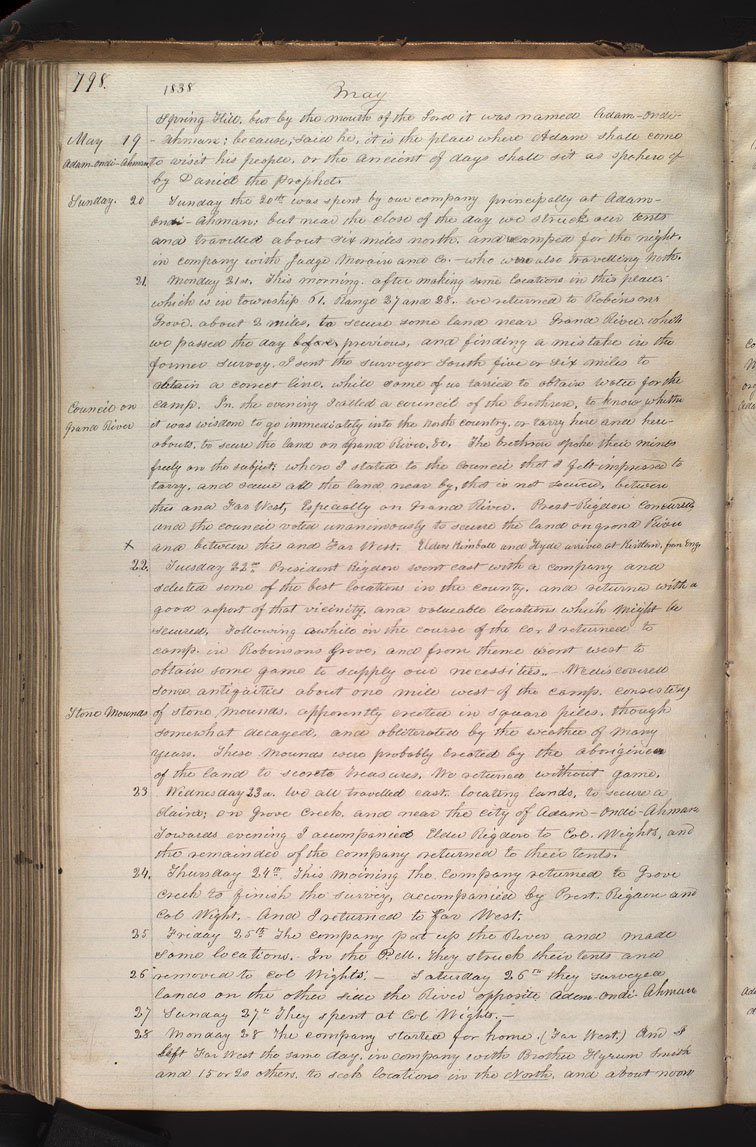 798.
1838
May
Spring Hill, but by the mouth of the Lord it was named Adam-ondi-
May 19
-Ahman; because, said he, it is the place where Adam shall come
Adam-ondi-Ahman
to visit his people, or the ancient of days shall sit as spoken of
by Daniel the Prophet.
Sunday. 20
Sunday the 20th was spent by our company principally at Adam-
ondi-Ahman; but near the close of the day we struck our tents
and travelled about six miles north, and encamped for the night,
in company with Judge Morain and Co. - who were also travelling North.
21.
Monday 21st. This morning, after making some locations in this place,
which is in township 61. Range 27 and 28. we returned to Robinsons
Grove, about 2 miles, to secure some land near Grand River. which
we passed the day before, previous, and finding a mistake in the
former survey, I sent the surveyor south five or six miles to
obtain a correct line, while some of us tarried to obtain water for the
camp. In the evening I called a council of the brethren, to know whether
Council on
Grand River
it was wisdom to go immediately into the north country, or tarry here and here-
abouts, to secure the land on Grand River. &c. The brethren spoke their minds
freely on the subject; when I stated to the council that I felt impressed to
tarry, and secure all the land near by, that is not secured, between
this and Far West, Especially on Grand River. Prest. Rigdon concurred
and the council voted unanimously to secure the land on grand River
x
and between this and Far West. Elders Kimball and Hyde arrived at Kirtland, from Eng
22.
Tuesday 22nd President Rigdon went east with a company and
selected some of the best locations in the county, and returned with a
good report of that vicinity, and valueable locations which might be
secured. Following awhile in the course of the co. I returned to
camp. in Robinsons Grove, and from thence went west to
obtain some game to supply our necessities.. - We discovered
some antiquities about one mile west of the camp, consisting
Stone Mounds
of stone mounds, apparently erected in square piles, though
somewhat decayed, and obliterated by the weather of many
years. These mounds were probably erected by the aborigines
of the land to secrete treasures. We returned without game.
23
Wednesday 23d. we all travelled east, locating lands, to secure a
claim; on Grove Creek, and near the city of Adam-Ondi-Ahman
Towards evening I acompanied Elder Rigdon to Col. Wights, and
the remainder of the company returned to their tents.
24.
Thursday 24th. This morning the company returned to Grove
creek to finish the survey, accompanied by Prest. Rigdon and
Col Wight. - And I returned to Far West.
25
Friday 25th The company went up the River and made
some locations. In the P.M. they struck their tents and
26
removed to Col Wights. - Saturday 26th they surveyed
lands on the other side the River opposite Adam-ondi-Ahman
27
Sunday 27th They spent at Col Wights. -
28
Monday 28 The company started for home. (Far West.) And I
left Far West the same day, in company with Brother Hyrum Smith
and 15 or 20 others, to seek locations in the North, and about noon